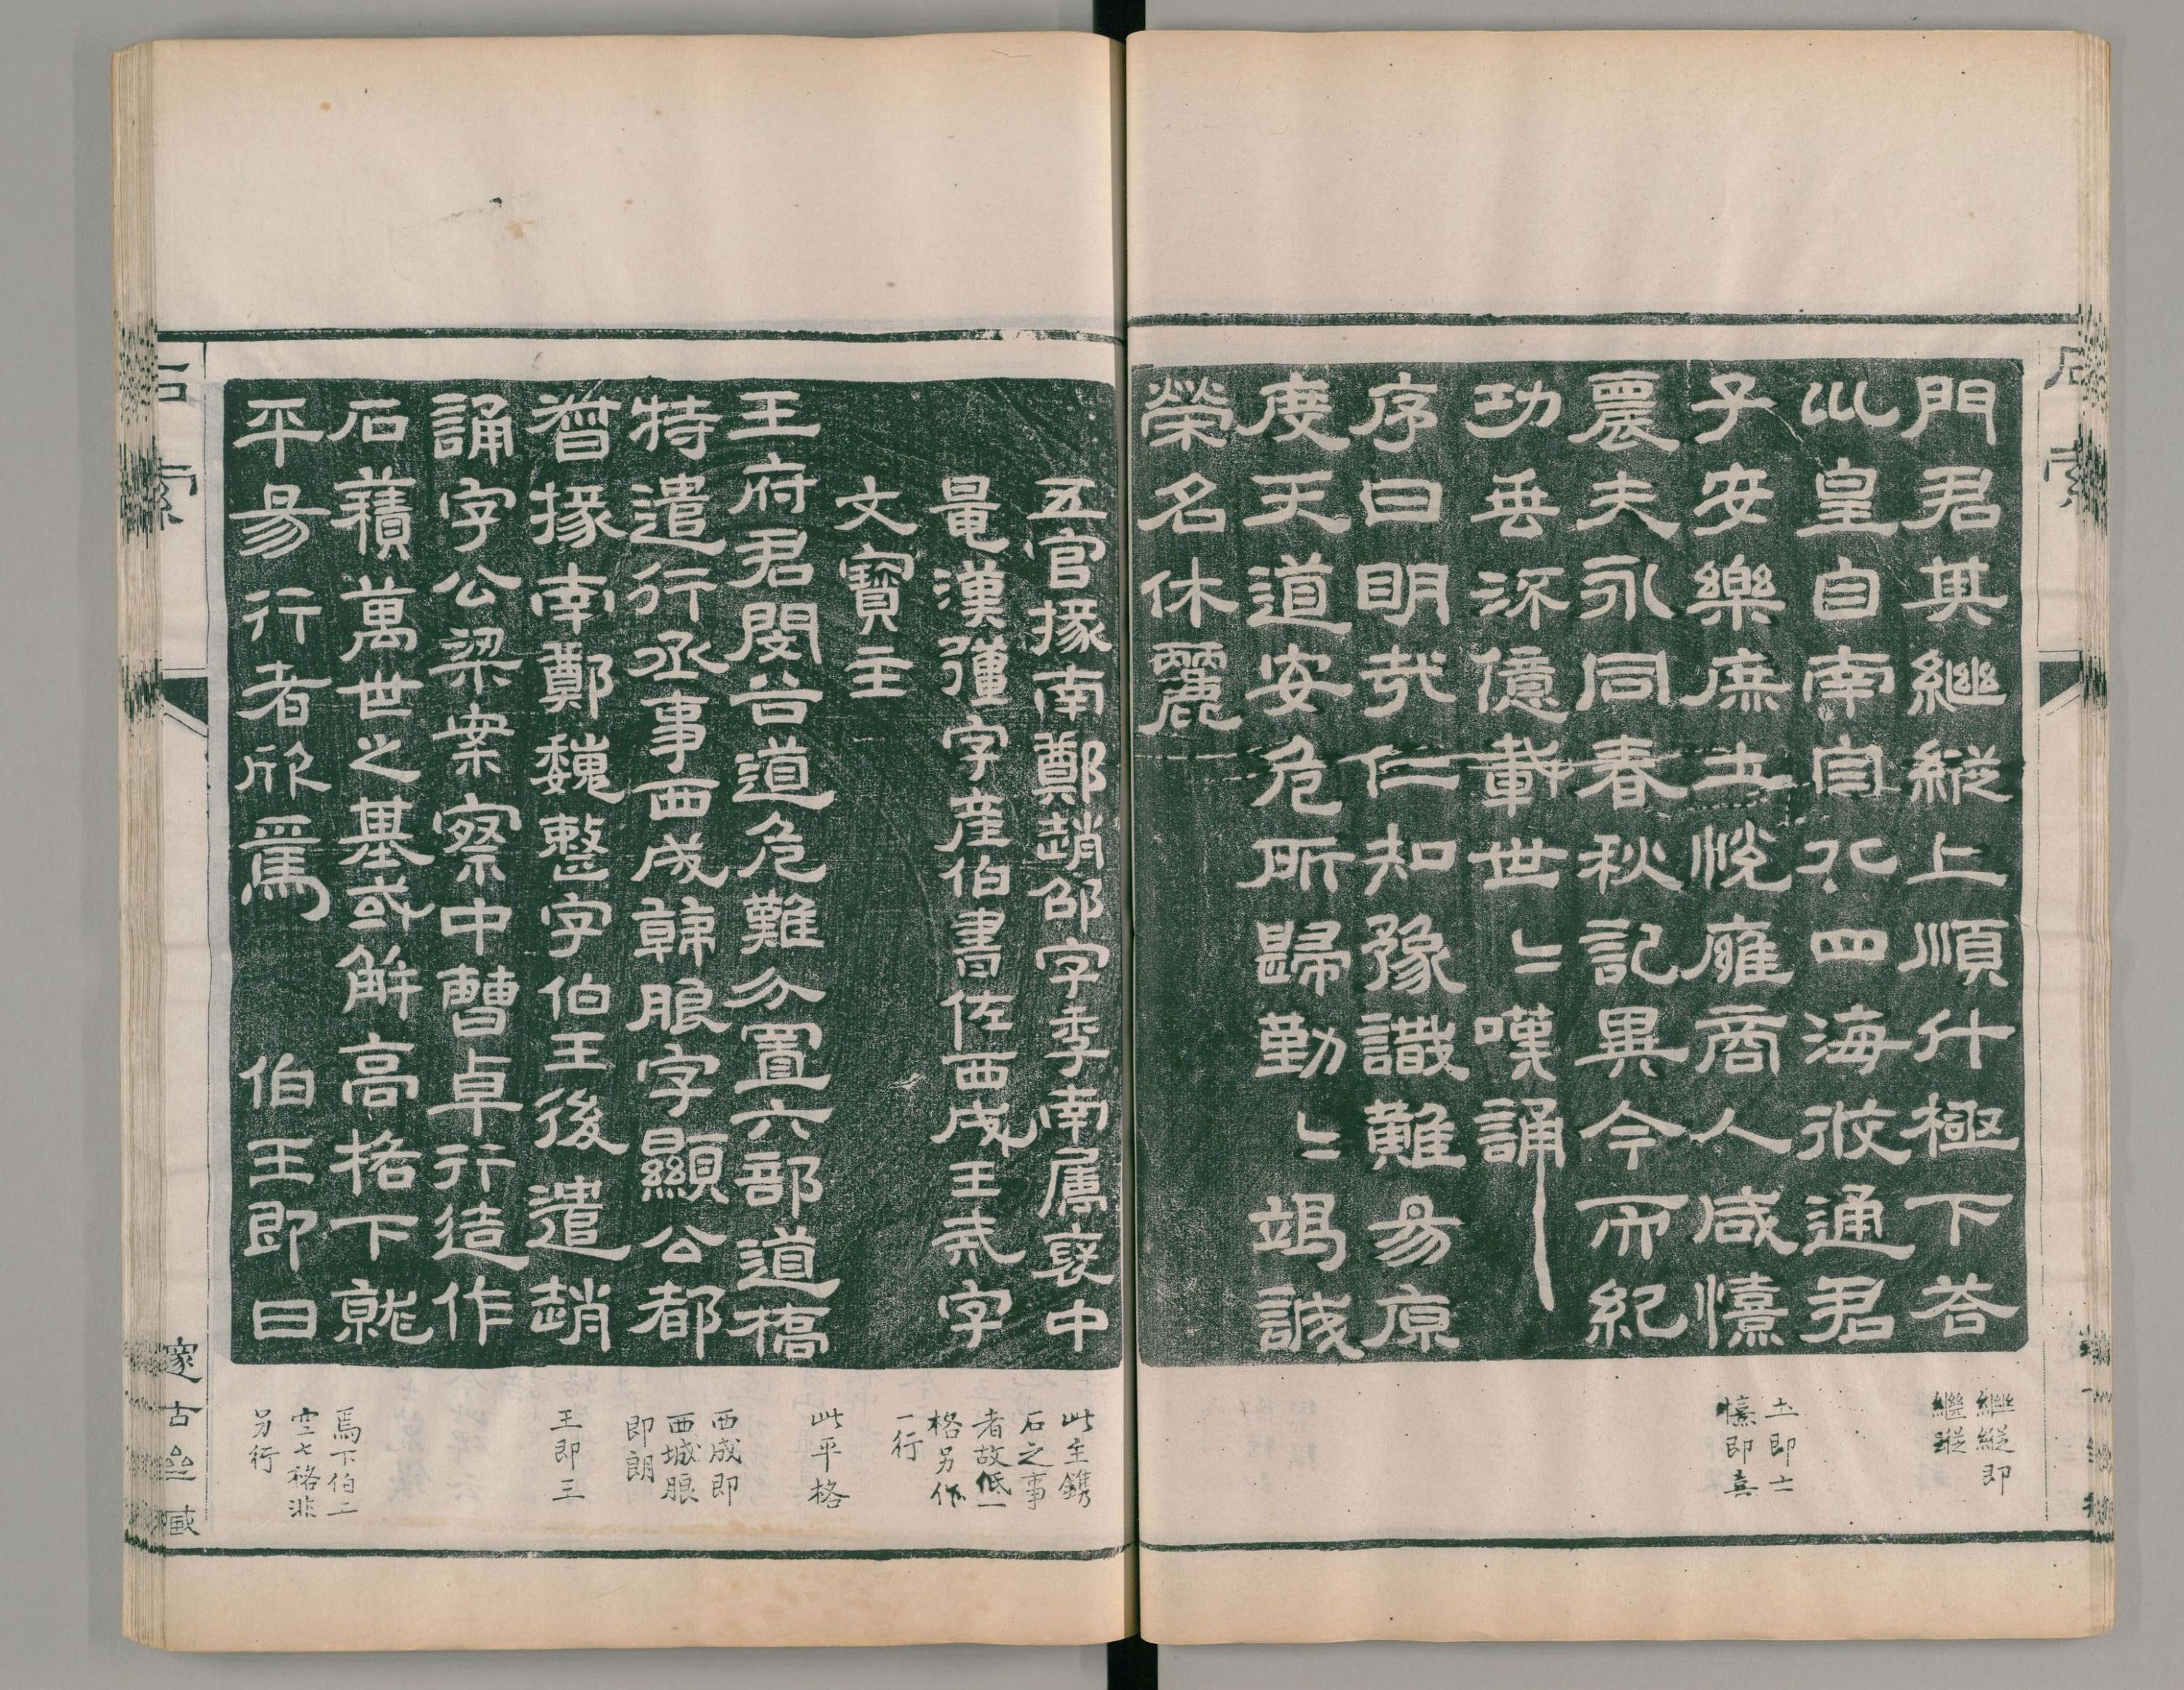 門君其繼縱上順斗極下荅
坤皇自南自北四海攸通君
子安樂庶士悅雍商人咸憘
農夫永同春秋記異今而紀
功垂流億載世〻嘆誦
序曰明哉仁知豫識難易原
度天道安危所歸勤〻竭誠
榮名休麗
繼縱即
繼蹤
士即士
憘即喜
五官掾南鄭趙邵字季南屬襃中
鼂漢彊字産伯書佐西成王戒字
文寶主
王府君閔谷道危難分置六部道橋
特遣行丞事西成韓朖字顯公都
督掾南鄭魏整字伯王後遣趙
誦字公梁案察中曹卓行造作
石積萬世之基或解高格下就
平易行者欣焉 伯王即日
此主鐫
石之事
者故低一
格另作
一行
此平格
西成即
西城朖
即朗
王即三
焉下伯上
空七格非
另行
石索
邃古齋藏